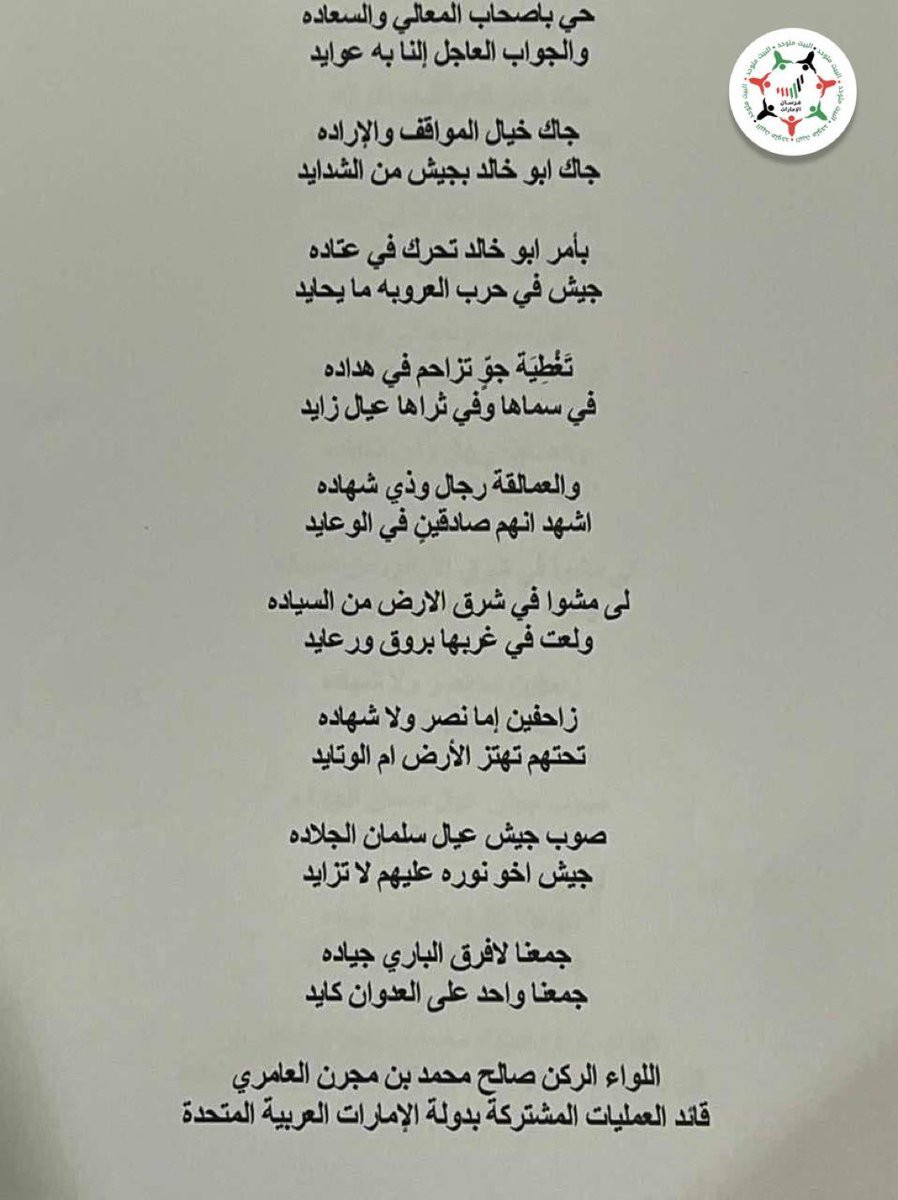 حي باصحاب المعالي والسعاده
والجواب العاجل إلنا به عوايد
جاك خيال المواقف والإراده
جاك ابو خالد بجيش من الشدايد
بأمر ابو خالد تحرك في عتاده
جيش في حرب العروبه ما يحايد
تَغْطِيَة جوٍّ تزاحم في هداده
في سماها وفي ثراها عيال زايد
والعمالقة رجال وذي شهاده
اشهد انهم صادقينٍ في الوعايد
لى مشوا في شرق الارض من السياده
ولعت في غربها بروق ورعايد
زاحفين إما نصر ولا شهاده
تحتهم تهتز الأرض ام الوتايد
صوب جيش عيال سلمان الجلاده
جيش اخو نوره عليهم لا تزايد
جمعنا لافرق الباري جياده
جمعنا واحد على العدوان كايد
اللواء الركن صالح محمد بن مجرن العامري
قائد العمليات المشتركة بدولة الإمارات العربية المتحدة
البيت متوحد
فرسان
الإمارات